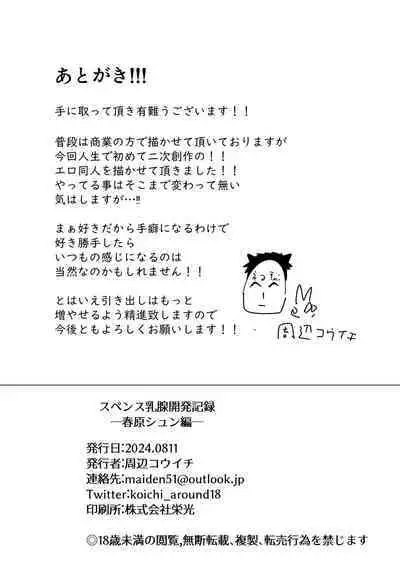 あとがき!!!
手に取って頂き有難うございます！！
普段は商業の方で描かせて頂いておりますが
今回人生で初めて二次創作の！！
エロ同人を描かせて頂きました！！
やってる事はそこまで変わって無い
気はしますが…!!
まぁ好きだから手癖になるわけで
好き勝手したら
いつもの感じになるのは
当然なのかもしれません！！
とはいえ引き出しはもっと
増やせるよう精進致しますので
今後ともよろしくお願いします！！
周辺コウイチ
スペンス乳腺開発記録
―春原シュン編―
発行日:2024.0811
発行者:周辺コウイチ
連絡先:maiden51@outlook.jp
Twitter:koichi_around18
印刷所:株式会社栄光
◎18歳未満の閲覧,無断転載、複製、転売行為を禁じます